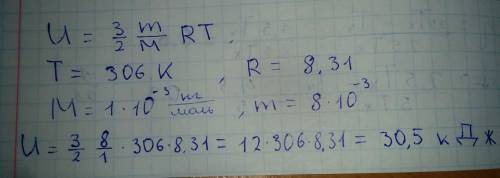 U = 3/2 m/M RT.
T = 306 K , R = 8,31
M = 1·10⁻³ кг/моль , m = 8·10⁻³
U = 3/2 8/1 · 306·8,31 = 12·306·8,31 = 30,5 кДж